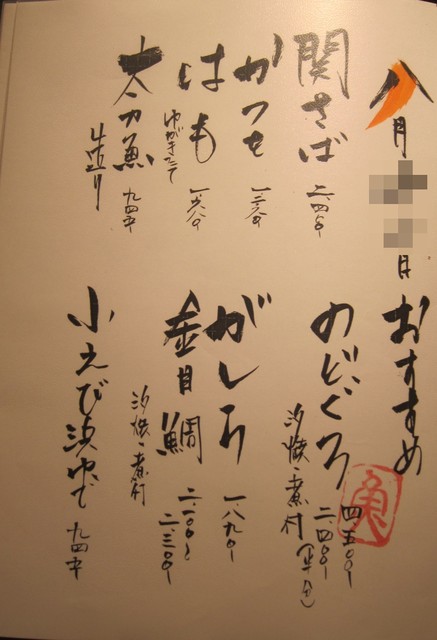 八月 日 おすすめ
関さば 二、四〇〇
かつを 一、二八〇
はも ゆがきたて
太刀魚 九四〇
生造り
のどぐろ 四、五〇〇
汐焼・煮付 (半分) 二、四〇〇
がしら 一、八九〇
金目鯛 二、一〇〇〜二、三〇〇
汐焼・煮付
小えび浜ゆで 九四〇
魚